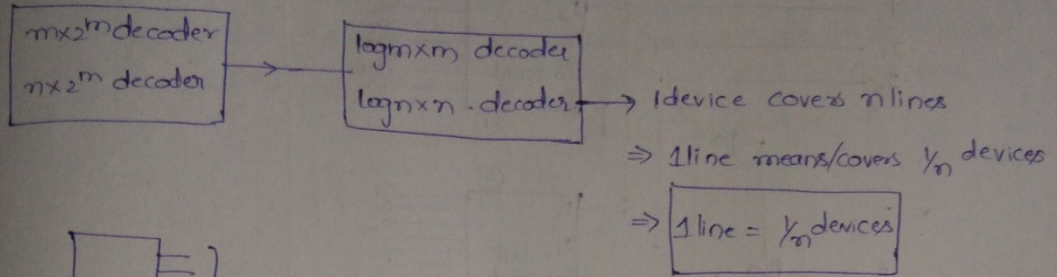 m×2^m decoder
n×2^m decoder
logm×m decoder
logn×n . decoder → 1device covers n lines
⇒ 1line means/covers 1/n devices
⇒ 1line = 1/n devices